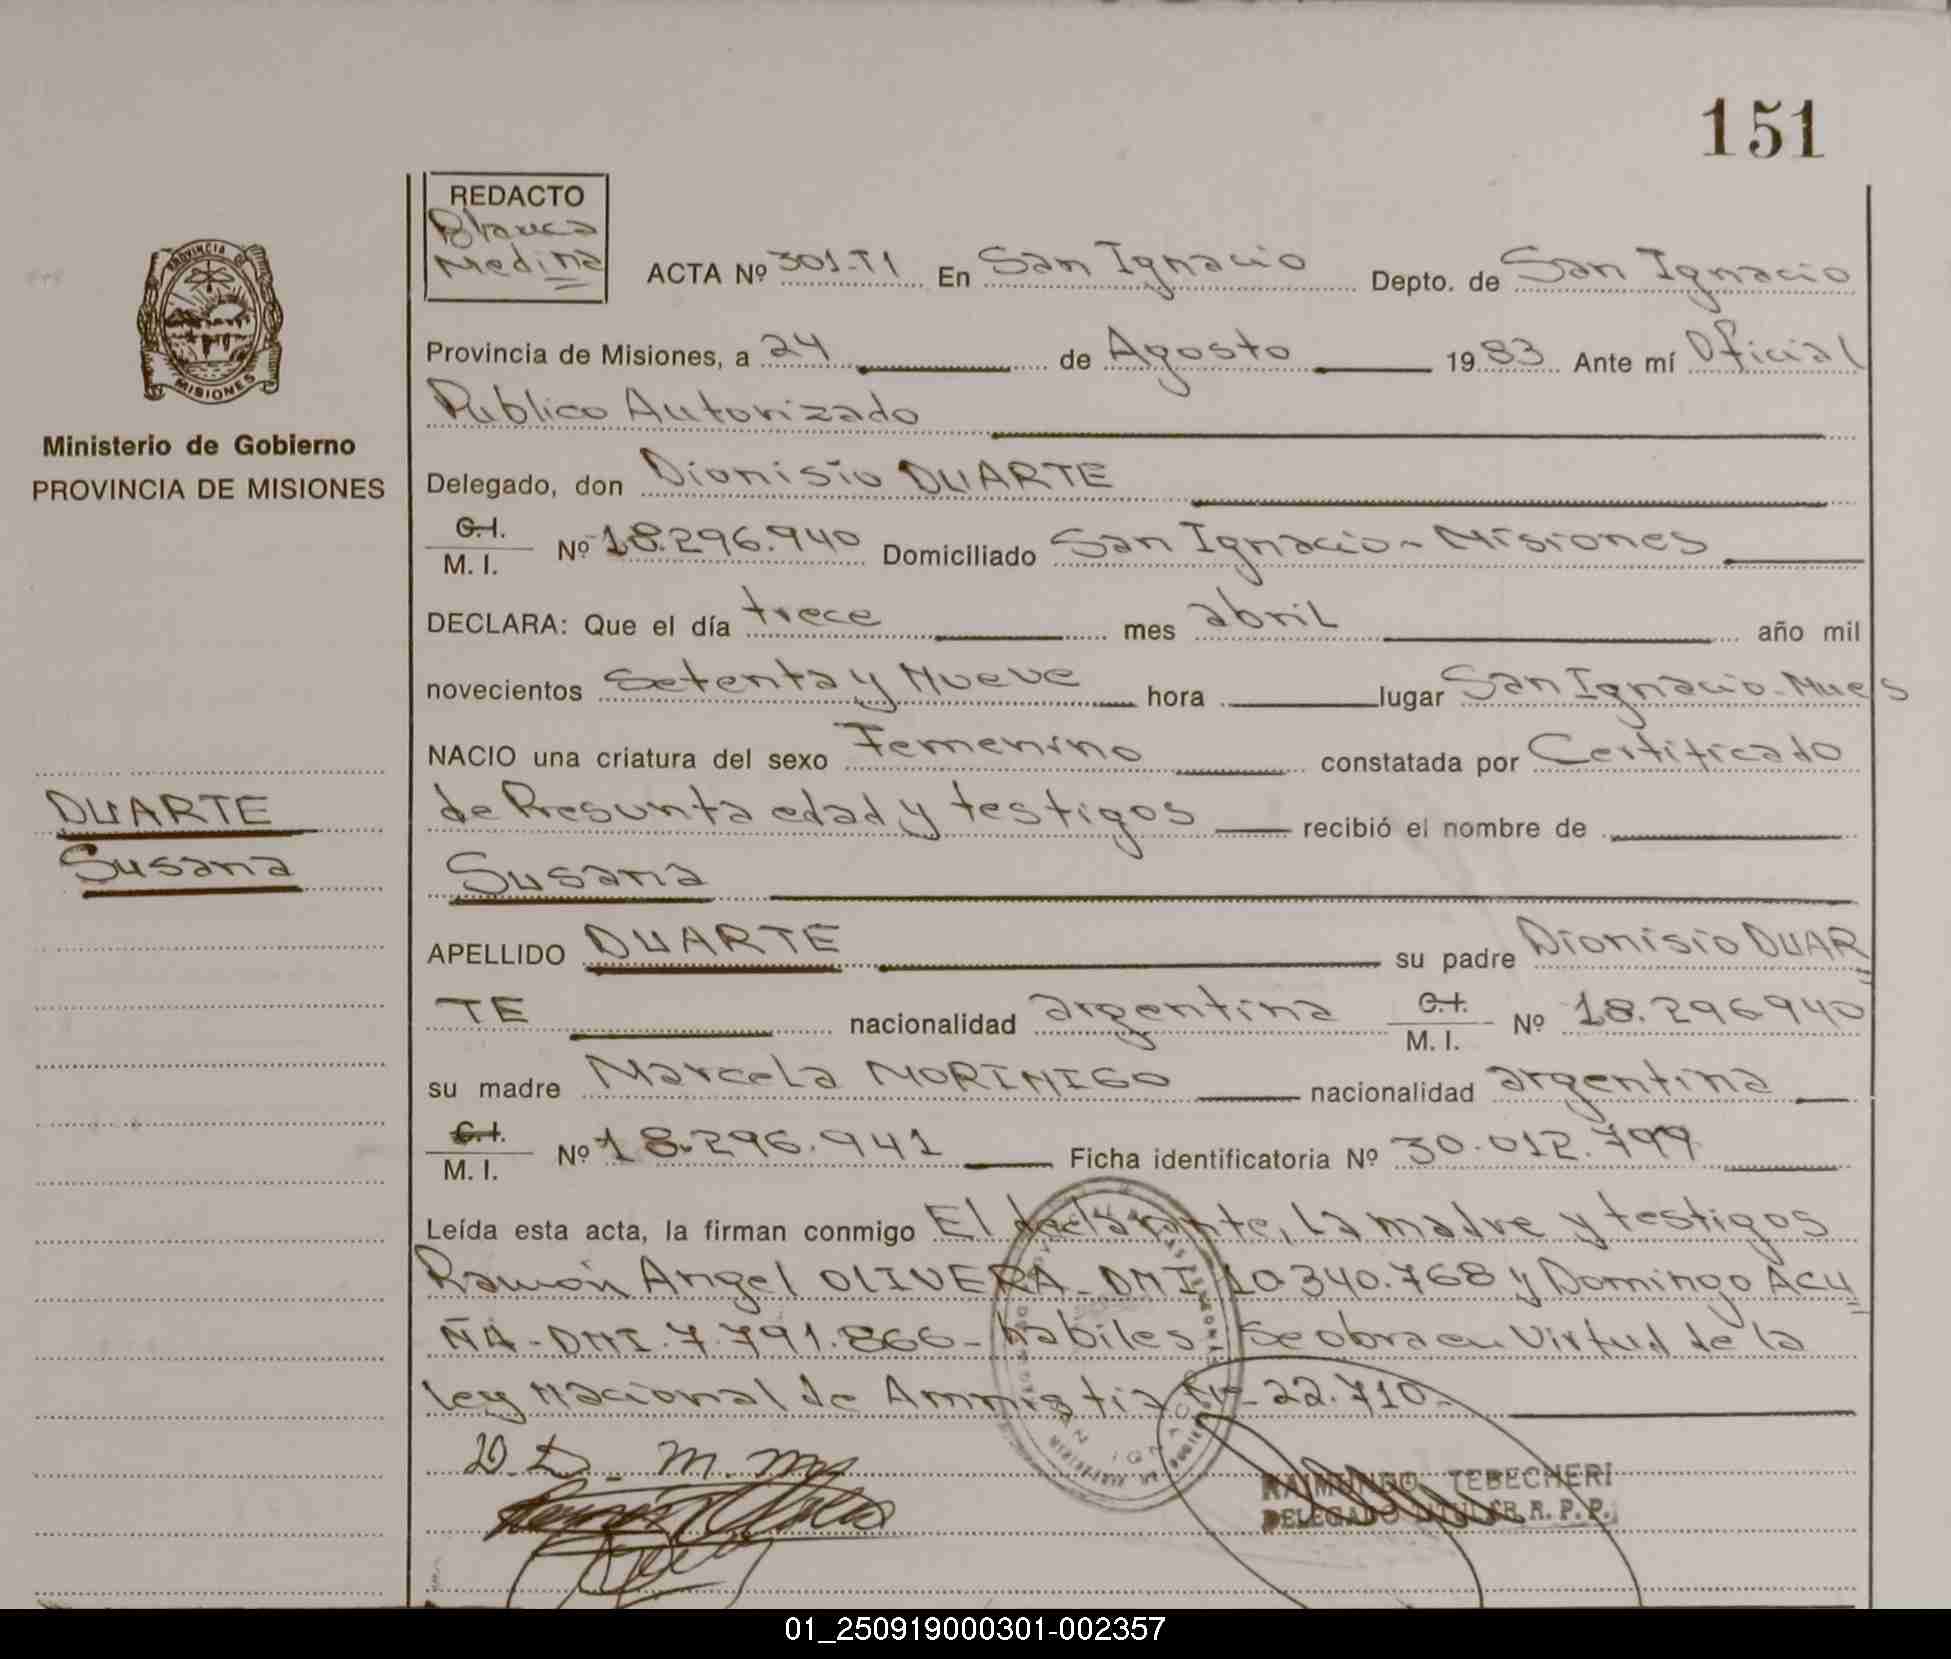 151
REDACTO
Blanca
Medina
PROVINCIA DE
MISIONES
Ministerio de Gobierno
PROVINCIA DE MISIONES
ACTA Nº 301-T1 En San Ignacio Depto. de San Ignacio
Provincia de Misiones, a 24 de Agosto 1983 Ante mí Oficial
Publico Autorizado
Delegado, don Dionisio DUARTE
C.I. / M. I. Nº 18.296.940 Domiciliado San Ignacio - Misiones
DECLARA: Que el día trece mes abril año mil
novecientos Setenta y Nueve hora lugar San Ignacio - Mnes
NACIO una criatura del sexo Femenino constatada por Certificado
DUARTE
de Presunta edad y testigos recibió el nombre de
Susana
Susana
APELLIDO DUARTE su padre Dionisio DUAR
TE nacionalidad argentina C.I. / M. I. Nº 18.296940
su madre Marcela MORINIGO nacionalidad argentina
C.I. / M. I. Nº 18.296.941 Ficha identificatoria Nº 30.012.799
Leída esta acta, la firman conmigo El declarante, la madre y testigos
Ramón Angel OLIVERA - DNI 10.340.768 y Domingo ACU
ÑA - DNI. 7.791.866 - habiles. Se obra en Virtud de la
ley Nacional de Amnistia Nº 22.710.
D. D. - M. M.
RAIMUNDO TEBECHERI
DELEGADO TITULAR R. P. P.
01_250919000301-002357